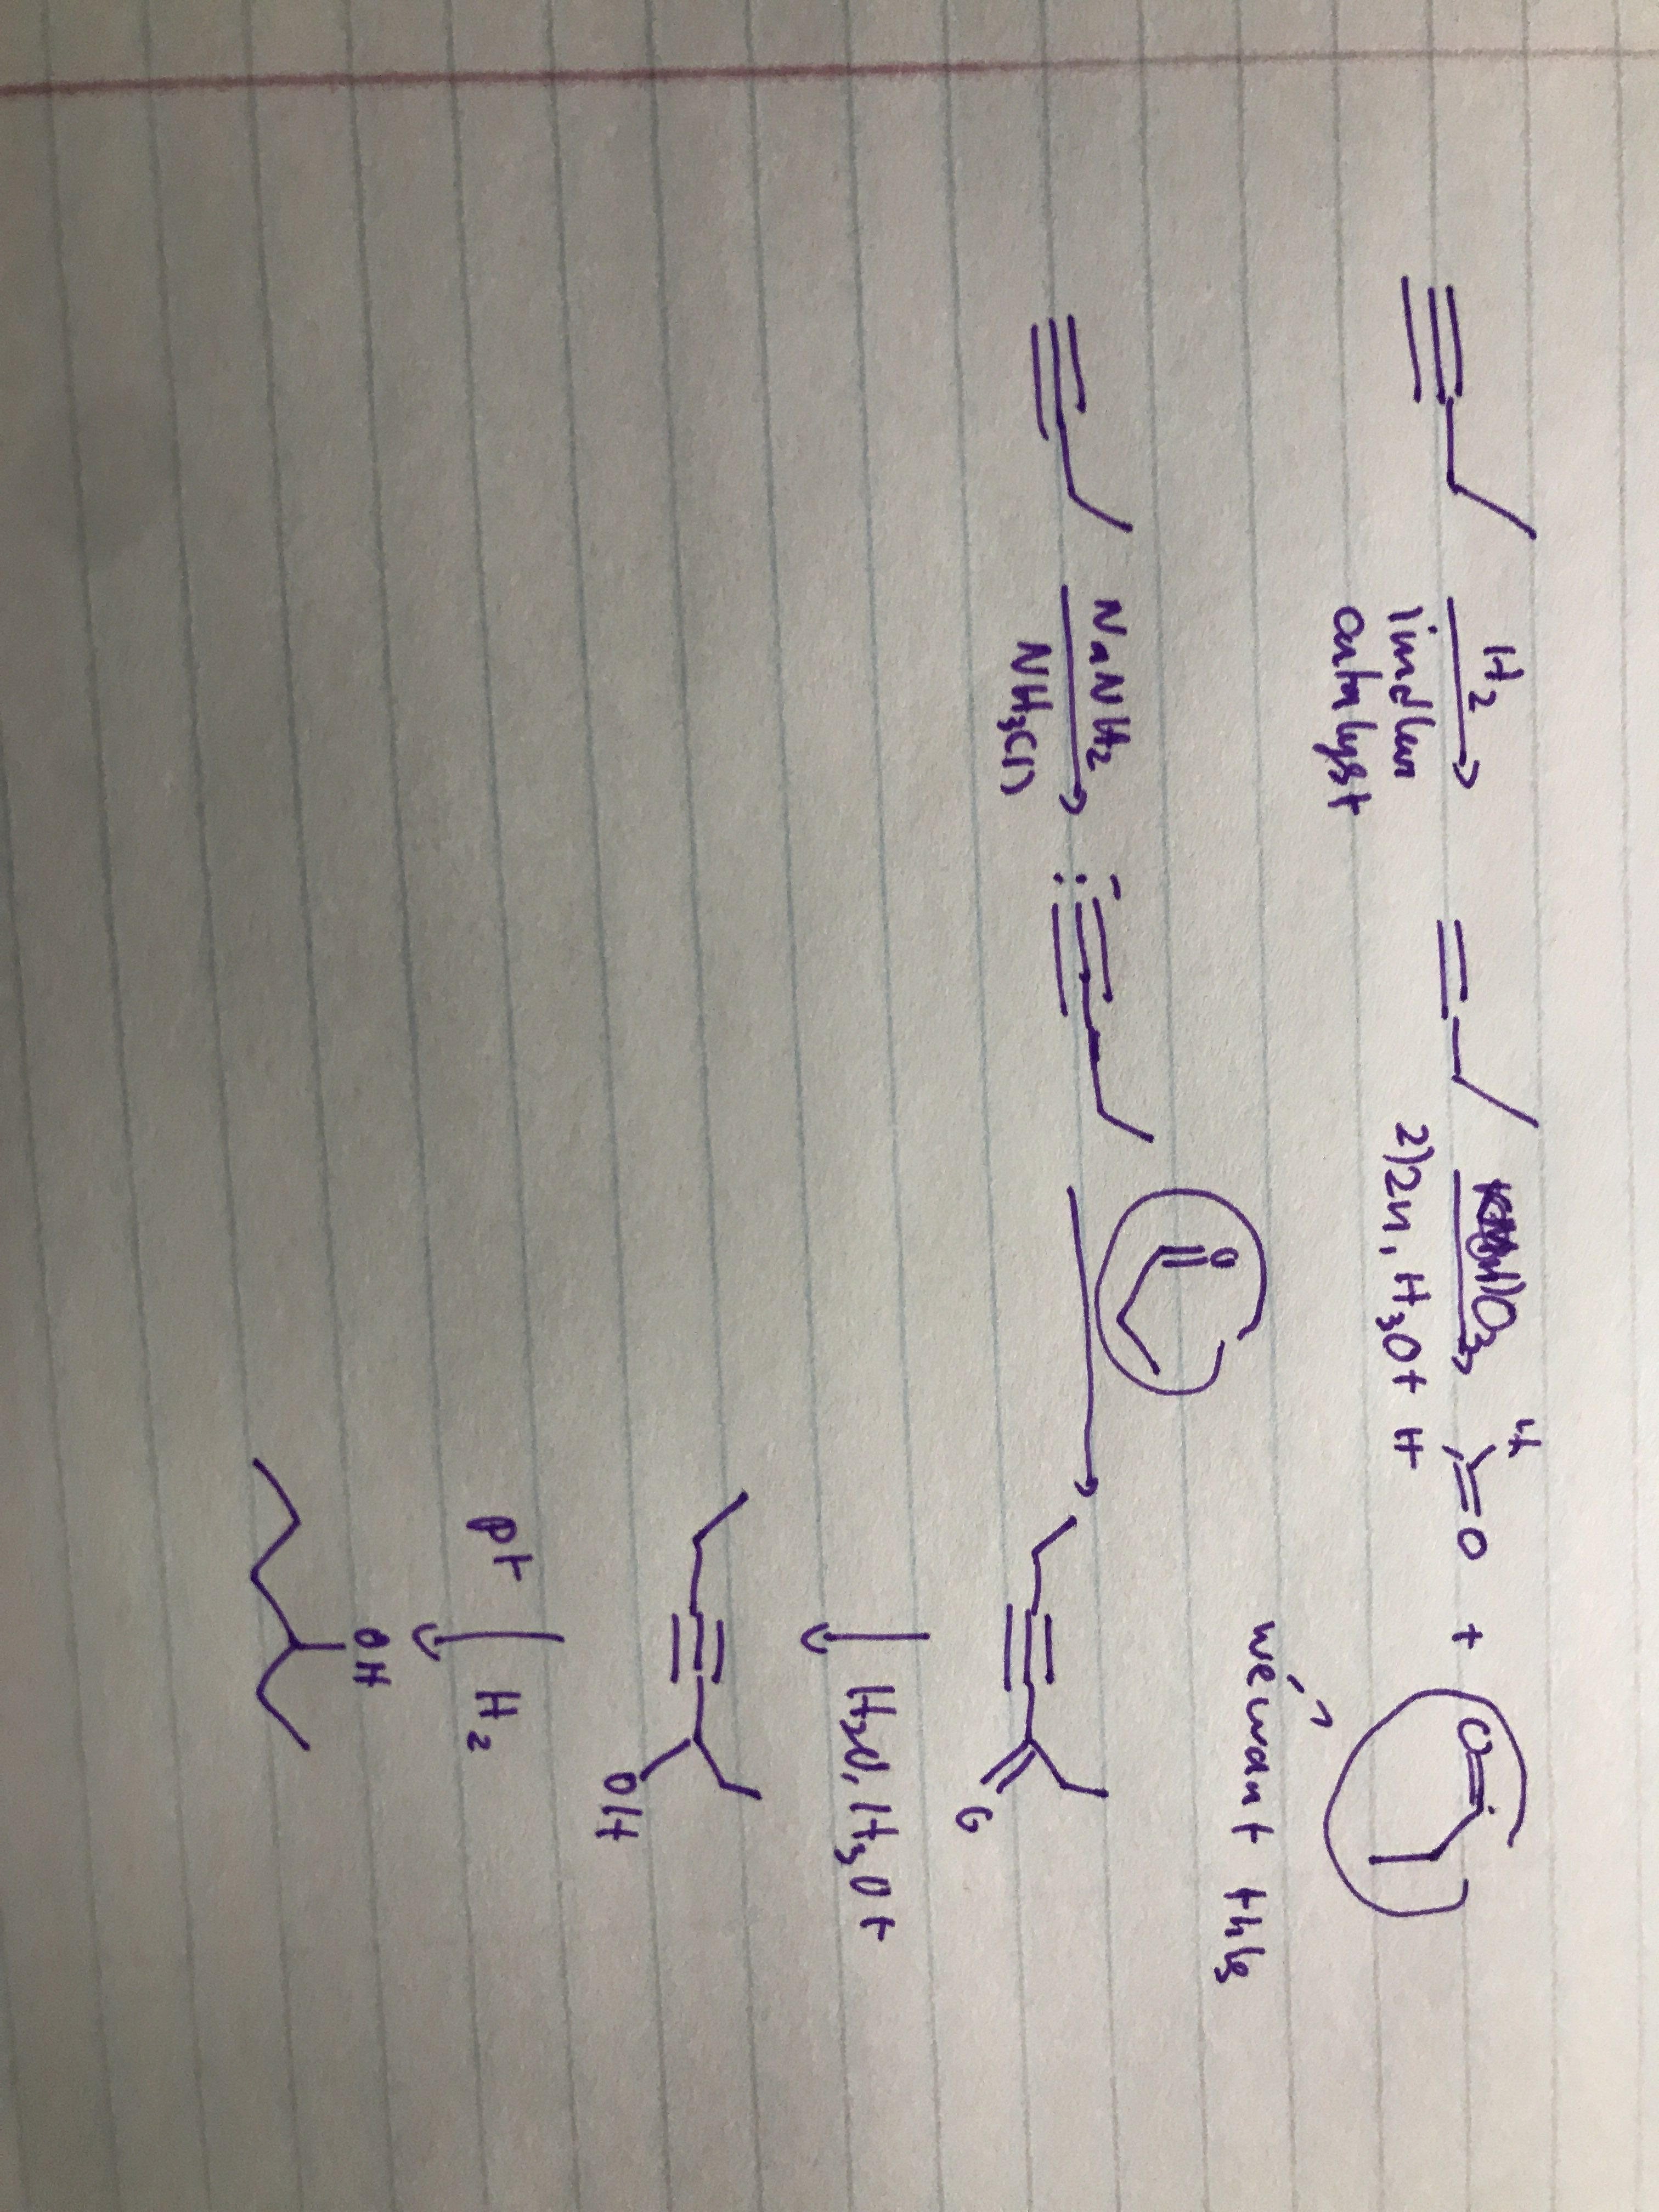 H2
lindlar
catalyst
1)O3
2)Zn, H3O+
H
H
O
+
O
we want this
O
NaNH2
NH3(l)
O
H2O, H3O+
OH
pt H2
OH